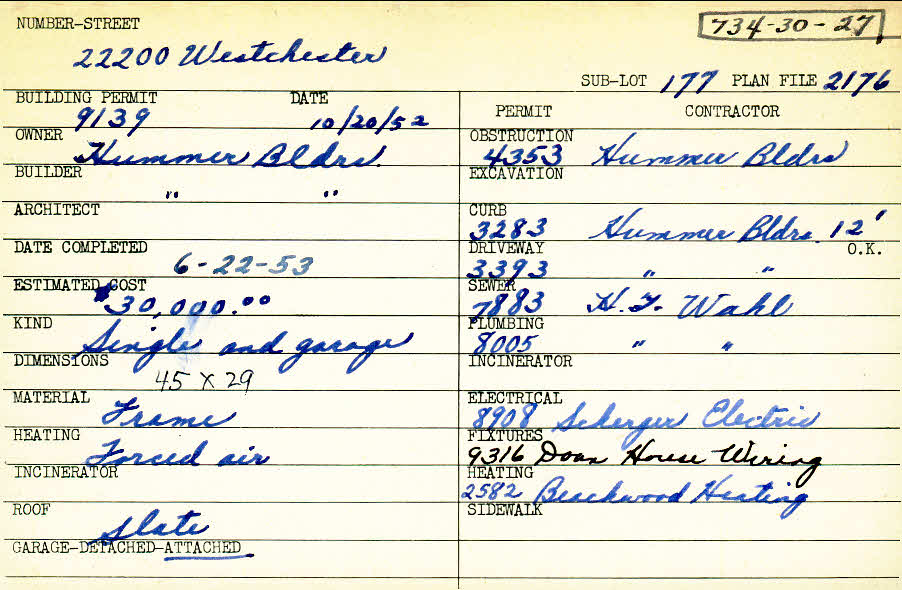 NUMBER-STREET
734-30-27
22200 Westchester
SUB-LOT 177 PLAN FILE 2176
BUILDING PERMIT DATE
9139 10/20/52
OWNER
Hummer Bldrs.
BUILDER
" "
ARCHITECT
DATE COMPLETED
6-22-53
ESTIMATED COST
$30,000.00
KIND
Single and garage
DIMENSIONS
45 X 29
MATERIAL
Frame
HEATING
Forced air
INCINERATOR
ROOF
Slate
GARAGE-DETACHED-ATTACHED
PERMIT CONTRACTOR
OBSTRUCTION
4353 Hummer Bldrs
EXCAVATION
CURB
3283 Hummer Bldrs. 12'
DRIVEWAY O.K.
3393 " "
SEWER
7883 H. F. Wahl
PLUMBING
8005 " "
INCINERATOR
ELECTRICAL
8908 Scherger Electric
FIXTURES
9316 Doan House Wiring
HEATING
2582 Beachwood Heating
SIDEWALK